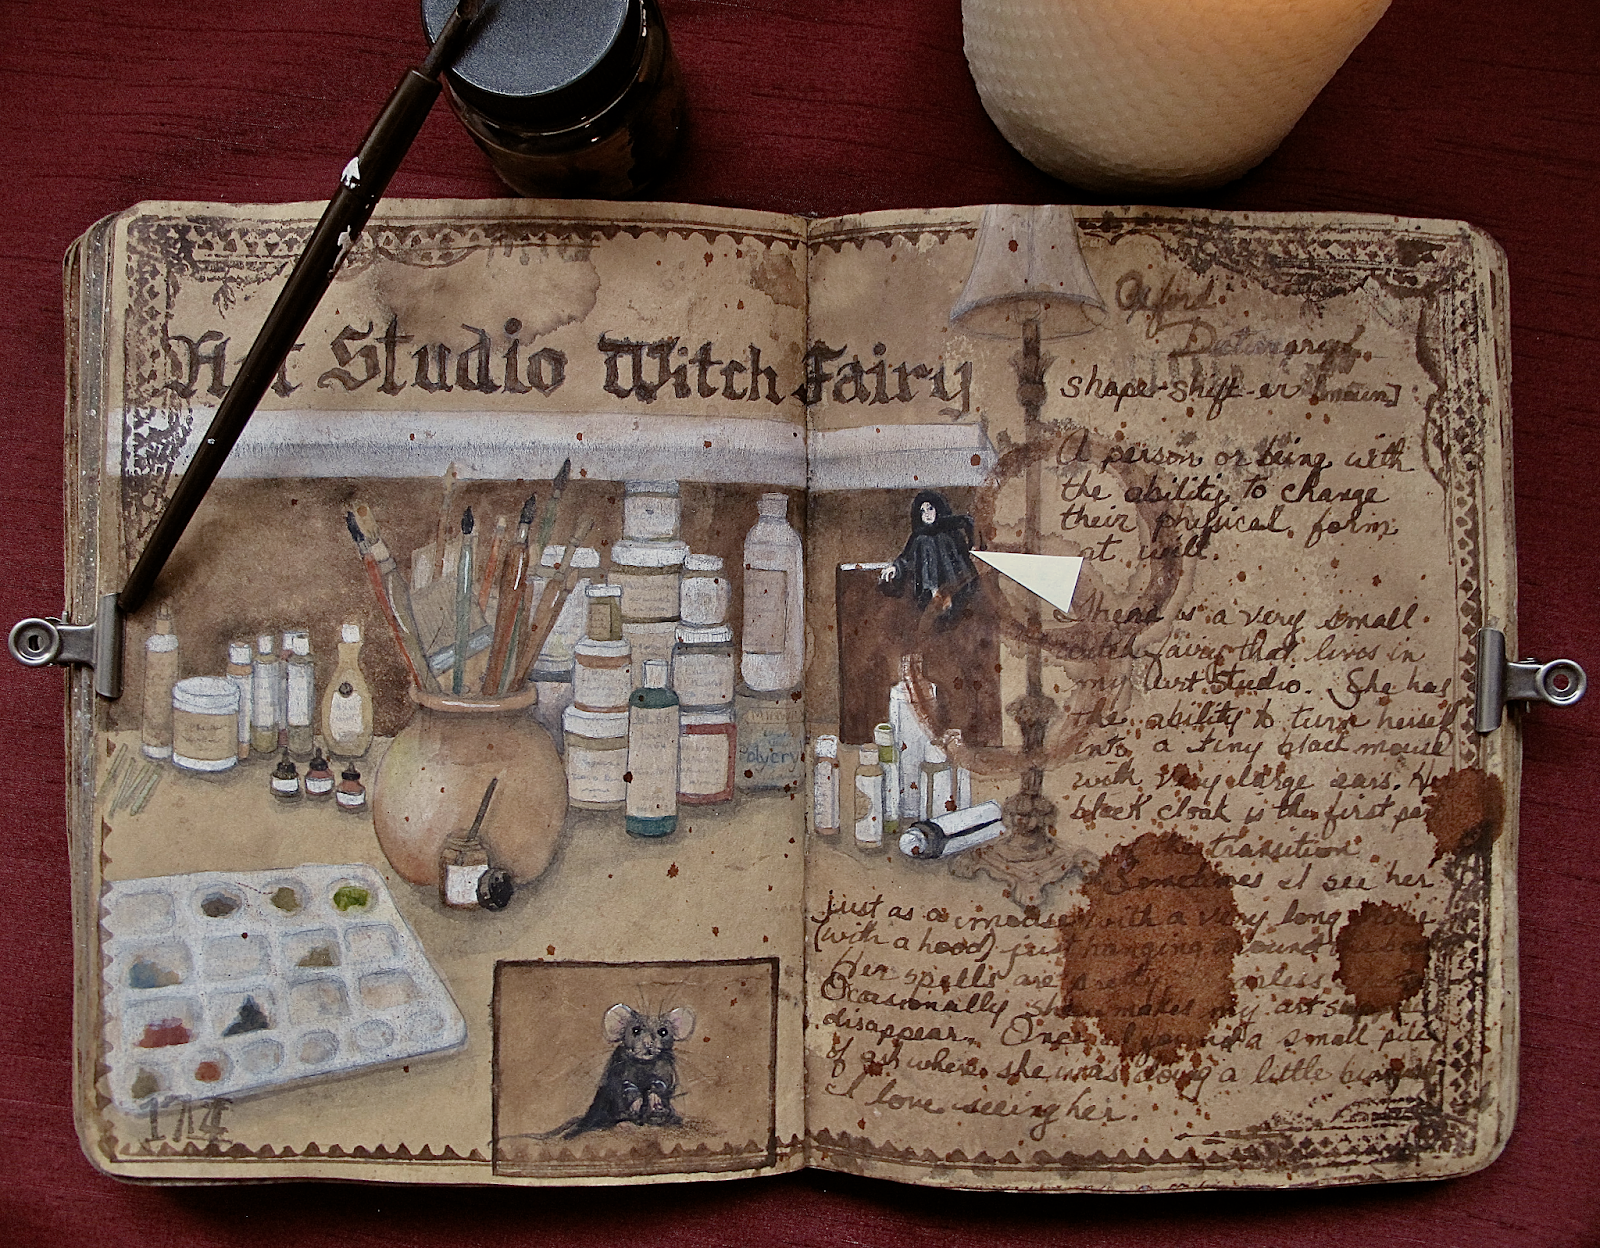 Art Studio Witch Fairy
Oxford
Dictionary
shape-shift-er [noun]
A person or being with
the ability to change
their physical form
at will.
There is a very small
witch fairy that lives in
my art studio. She has
the ability to turn herself
into a tiny black mouse
with very large ears. Her
black cloak is the first part
of the transition.
Sometimes I see her
just as a mouse with a very long
(with a hood) just hanging around the
Her spells are pretty
Ocasionally she makes my art supplies
disappear. Once I found a small pile
of ash where she was doing a little
I love seeing her.
Polycry